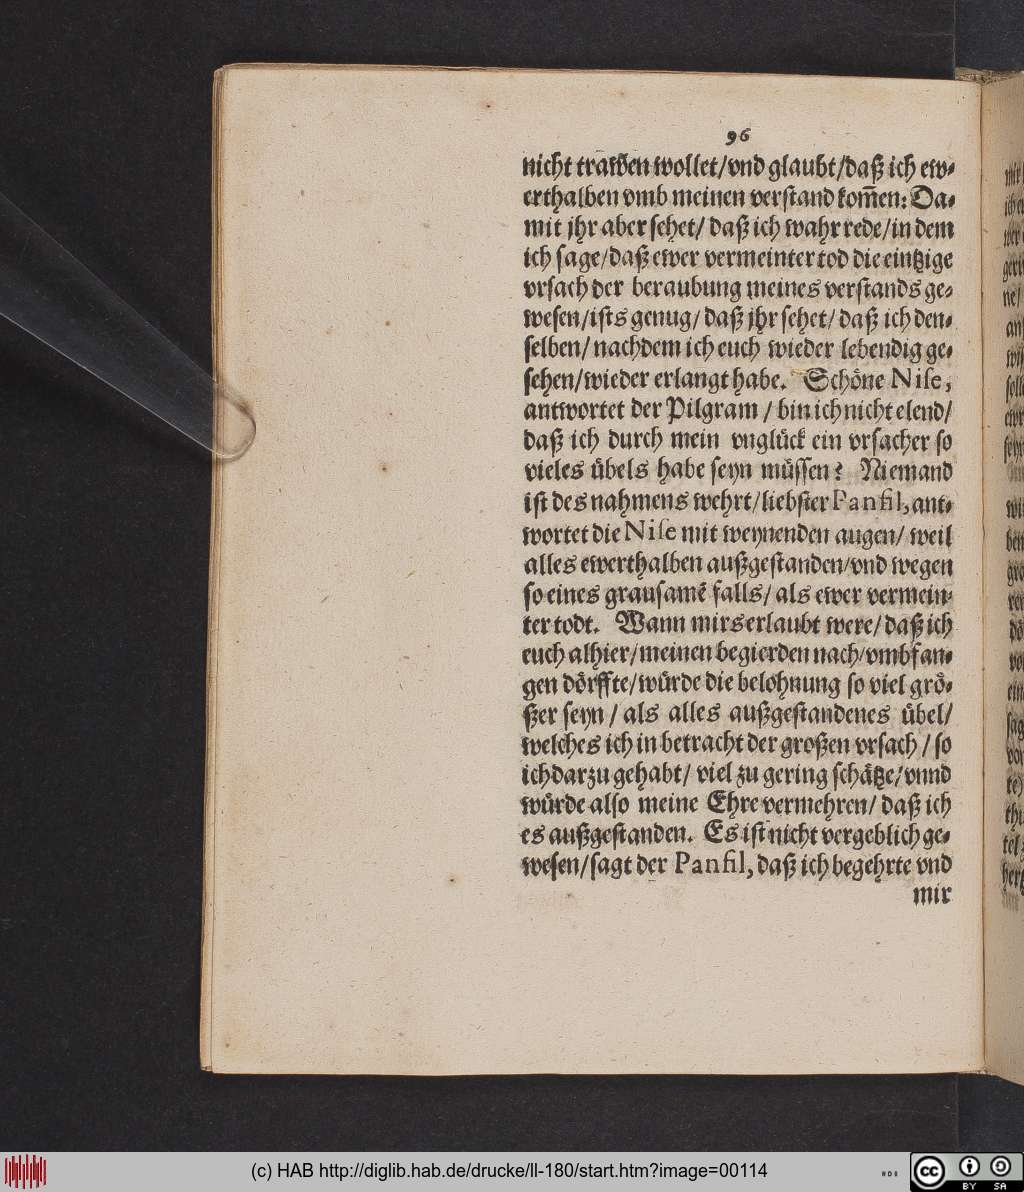 96
nicht trawen wollet/vnd glaubt/daß ich ew-
erthalben vmb meinen verstand kom̃en: Da-
mit jhr aber sehet/ daß ich wahr rede/in dem
ich sage/daß ewer vermeinter tod die eintzige
vrsach der beraubung meines verstands ge-
wesen/ists genug/ daß jhr sehet/ daß ich den-
selben/ nachdem ich euch wieder lebendig ge-
sehen/wieder erlangt habe. Schöne Nise,
antwortet der Pilgram / bin ich nicht elend/
daß ich durch mein vnglück ein vrsacher so
vieles übels habe seyn müssen? Niemand
ist des nahmens wehrt/liebster Panfil, ant-
wortet die Nise mit weynenden augen/ weil
alles ewerthalben außgestanden/vnd wegen
so eines grausamẽ falls/ als ewer vermein-
ter todt. Wann mirs erlaubt were/ daß ich
euch alhier/meinen begierden nach/vmbfan-
gen dörffte/würde die belohnung so viel grö-
ßer seyn / als alles außgestandenes übel/
welches ich in betracht der großen vrsach / so
ich darzu gehabt/ viel zu gering schätze/vnnd
würde also meine Ehre vermehren/ daß ich
es außgestanden. Es ist nicht vergeblich ge-
wesen/sagt der Panfil, daß ich begehrte vnd
mir
(c) HAB http://diglib.hab.de/drucke/ll-180/start.htm?image=00114
cc BY SA